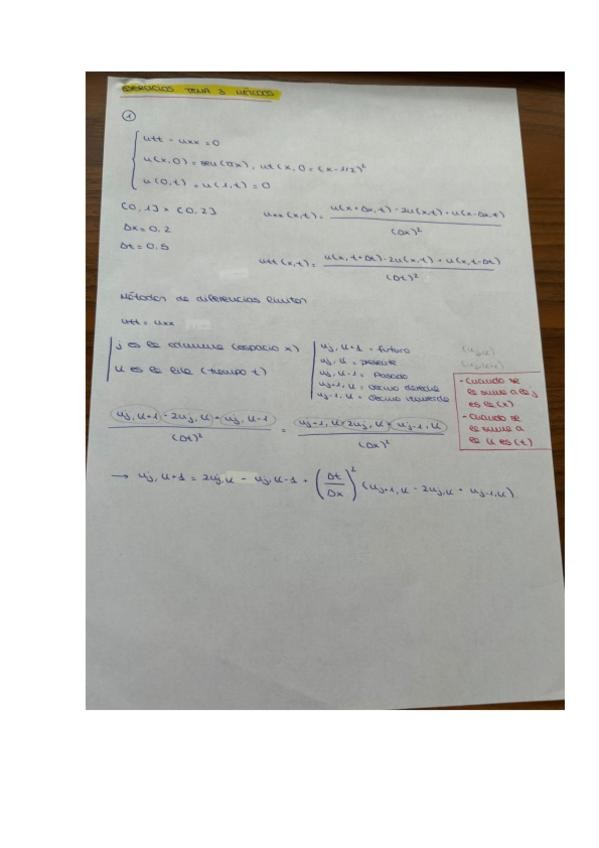 EJERCICIOS TEMA 3 MÉTODOS
①
utt - uxx = 0
u(x,0) = sen(πx), ut(x,0 = (x-1/2)²
u(0,t) = u(1,t) = 0
[0,1] x [0,2]
Δx = 0,2
Δt = 0,5
uxx(x,t) = u(x+Δx,t) - 2u(x,t) + u(x-Δx,t) / (Δx)²
utt(x,t) = u(x,t+Δt) - 2u(x,t) + u(x,t-Δt) / (Δt)²
Métodos de diferencias finitas
utt = uxx
j es la columna (espacio x)
k es la fila (tiempo t)
uj,k+1 = futuro
uj,k = presente
uj,k-1 = Pasado
uj+1,k = vecino derecha
uj-1,k = vecino izquierda
- Cuando se
le suma a la j
es la (x)
- Cuando se
le suma a
la k es (t)
uj,k+1 - 2uj,k + uj,k-1 / (Δt)² = uj+1,k - 2uj,k + uj-1,k / (Δx)²
→ uj,k+1 = 2uj,k - uj,k-1 + (Δt/Δx)² (uj+1,k - 2uj,k + uj-1,k)